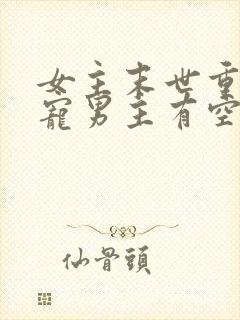 女主末世重
寵男主有空
仙骨頭